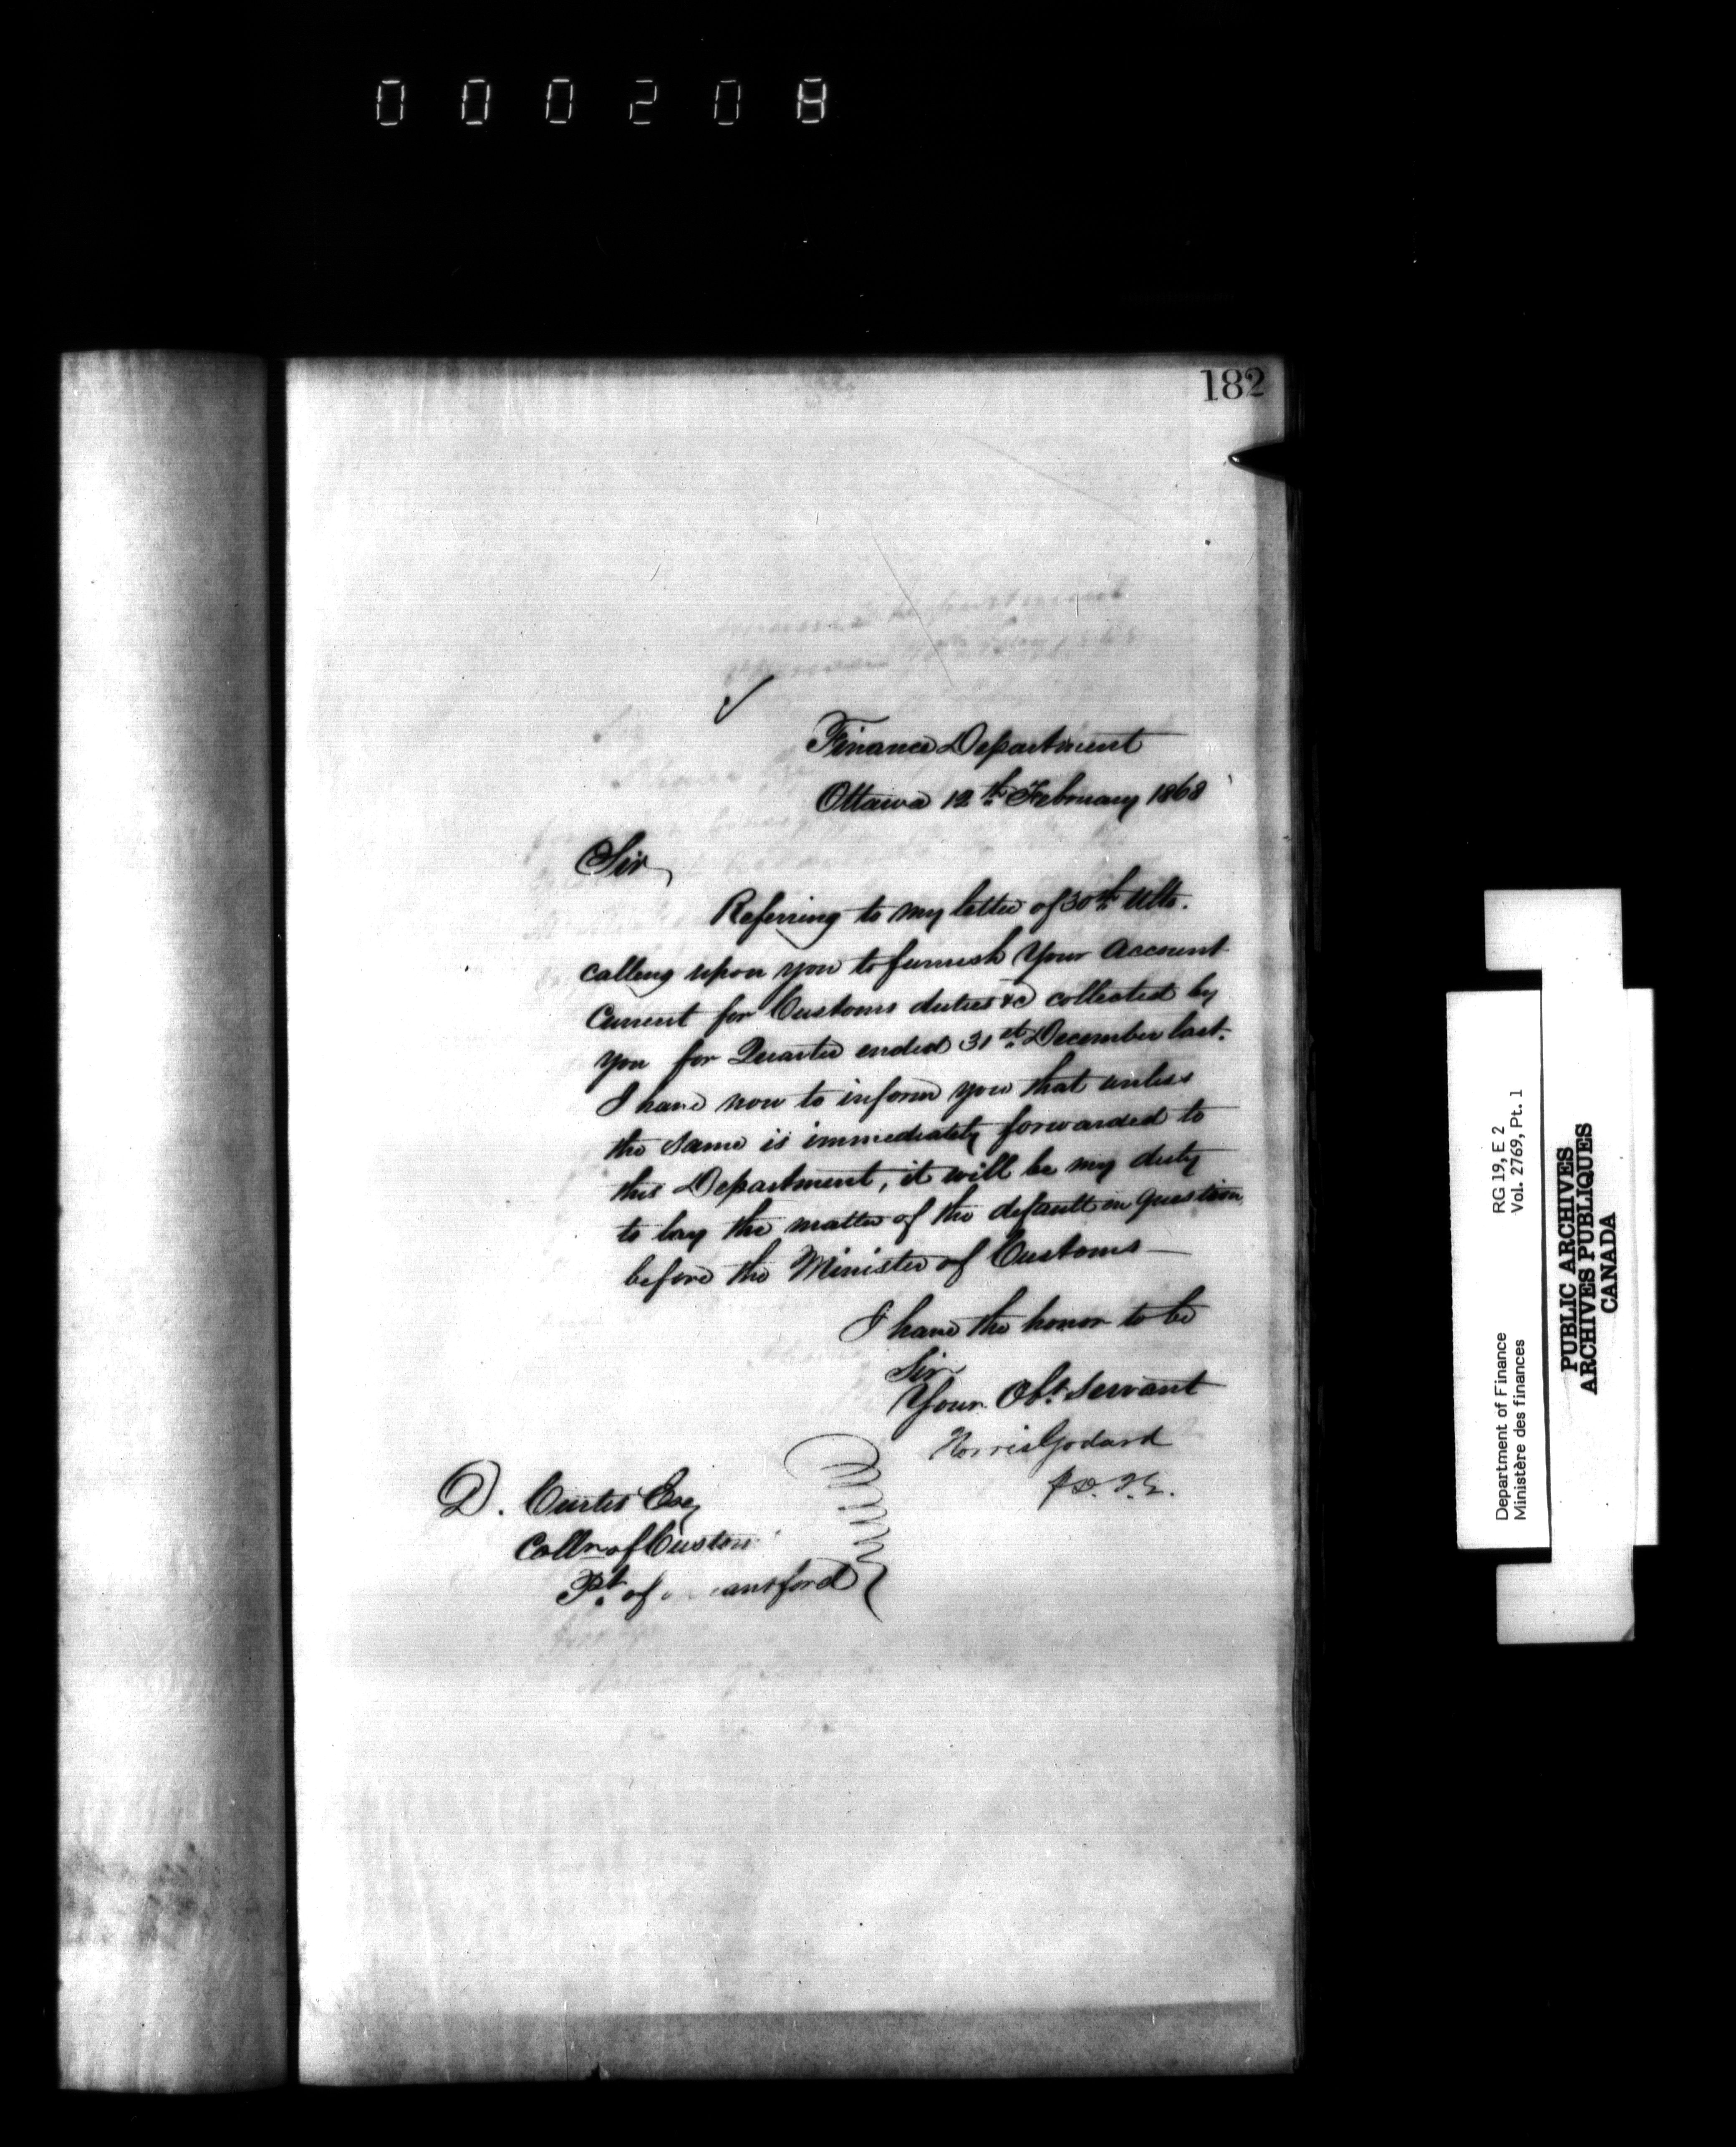 000208
182
Finance Department
Ottawa 12th February 1868
Sir
Referring to my letter of 30th Ulto.
calling upon you to furnish Your Account
Current for Customs duties &c collected by
you for Quarter ended 31st December last.
I have now to inform you that unless
the same is immediately forwarded to
this Department, it will be my duty
to lay the matter of the default in question
before the Minister of Customs —
I have the honor to be
Sir
Your Obt. Servant
Norris Godard
D. Curtis Esq
Collr of Customs
Pt. of
Department of Finance
Ministère des finances
RG 19, E 2
Vol. 2769, Pt. 1
PUBLIC ARCHIVES
ARCHIVES PUBLIQUES
CANADA